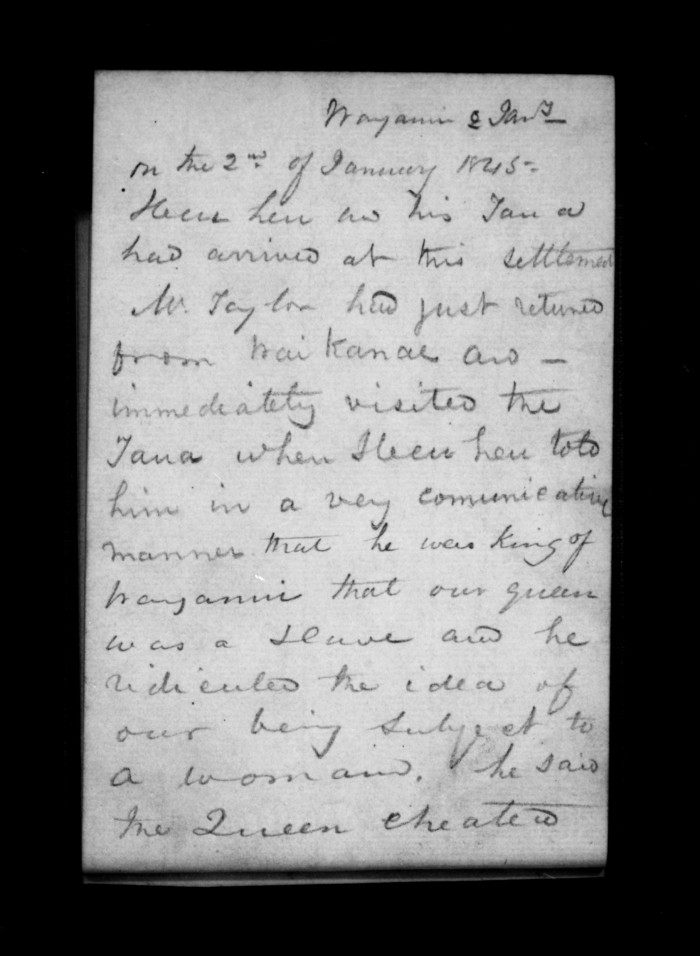 Wanganui 2 Jany
on the 2nd of January 1845-
Heeu heu and his Taua
had arrived at this settlement
Mr. Taylor had just returned
from Waikanae and -
immediately visited the
Taua when Heeu heu told
him in a very comunicating
manner that he was King of
Wanganui that our queen
was a Slave and he
ridiculed the idea of
our being subject to
a woman. he said
the Queen cheated